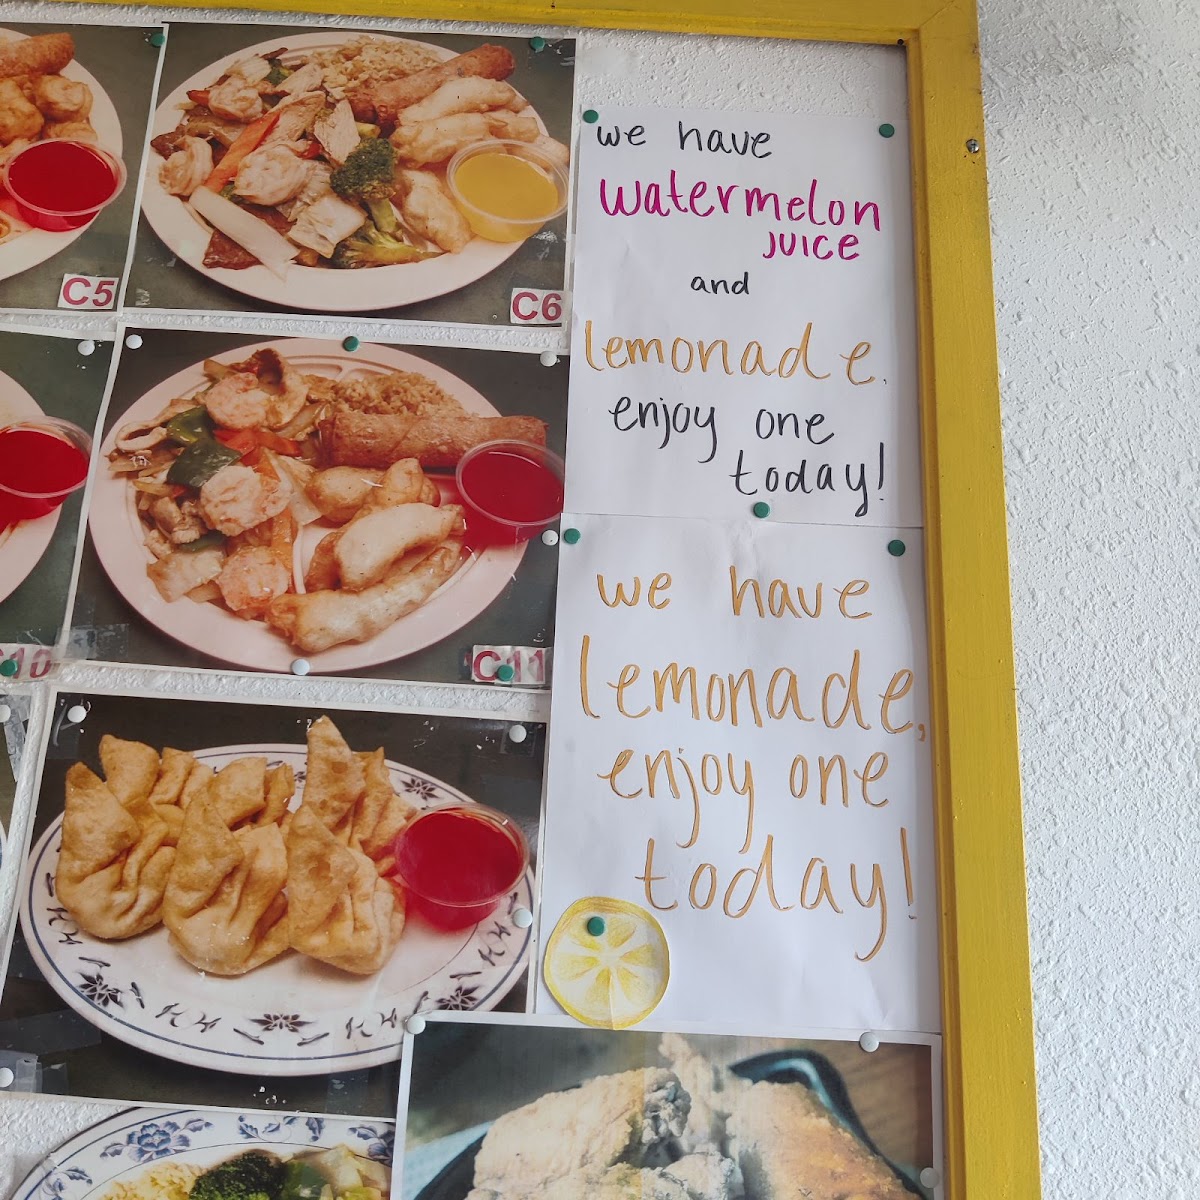 C5
C6
we have
watermelon
juice
and
lemonade.
enjoy one
today!
C10
C11
we have
lemonade,
enjoy one
today!